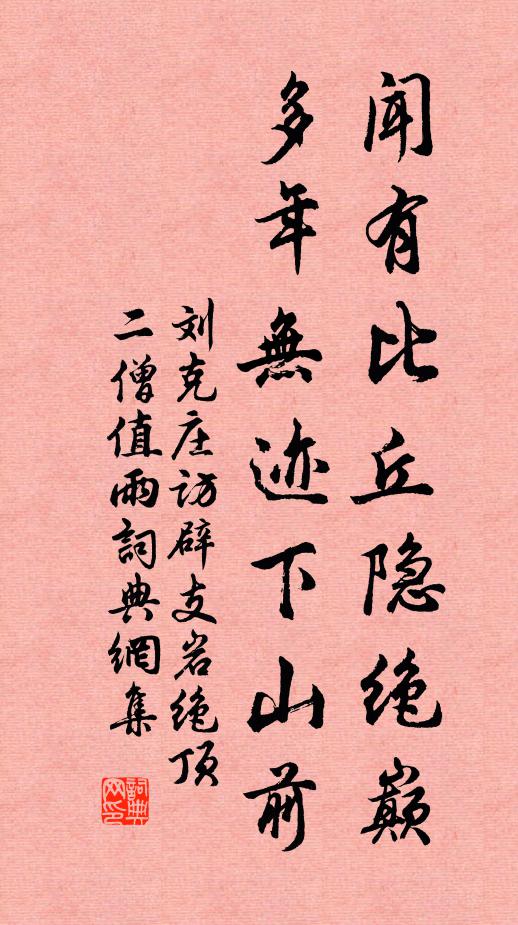 闻有比丘隐绝巅
多年無迹下山前
刘克庄访辟支岩绝顶
二僧值雨詞典網集
詞典网印